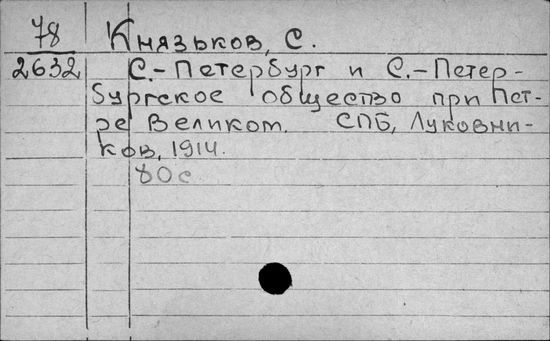 78 Князьков, С.
2632 С.-Петербург и С.-Петер-
бургское общество при Пет-
ре Великом. СПБ, Луковни-
ков, 1914.
80 с.